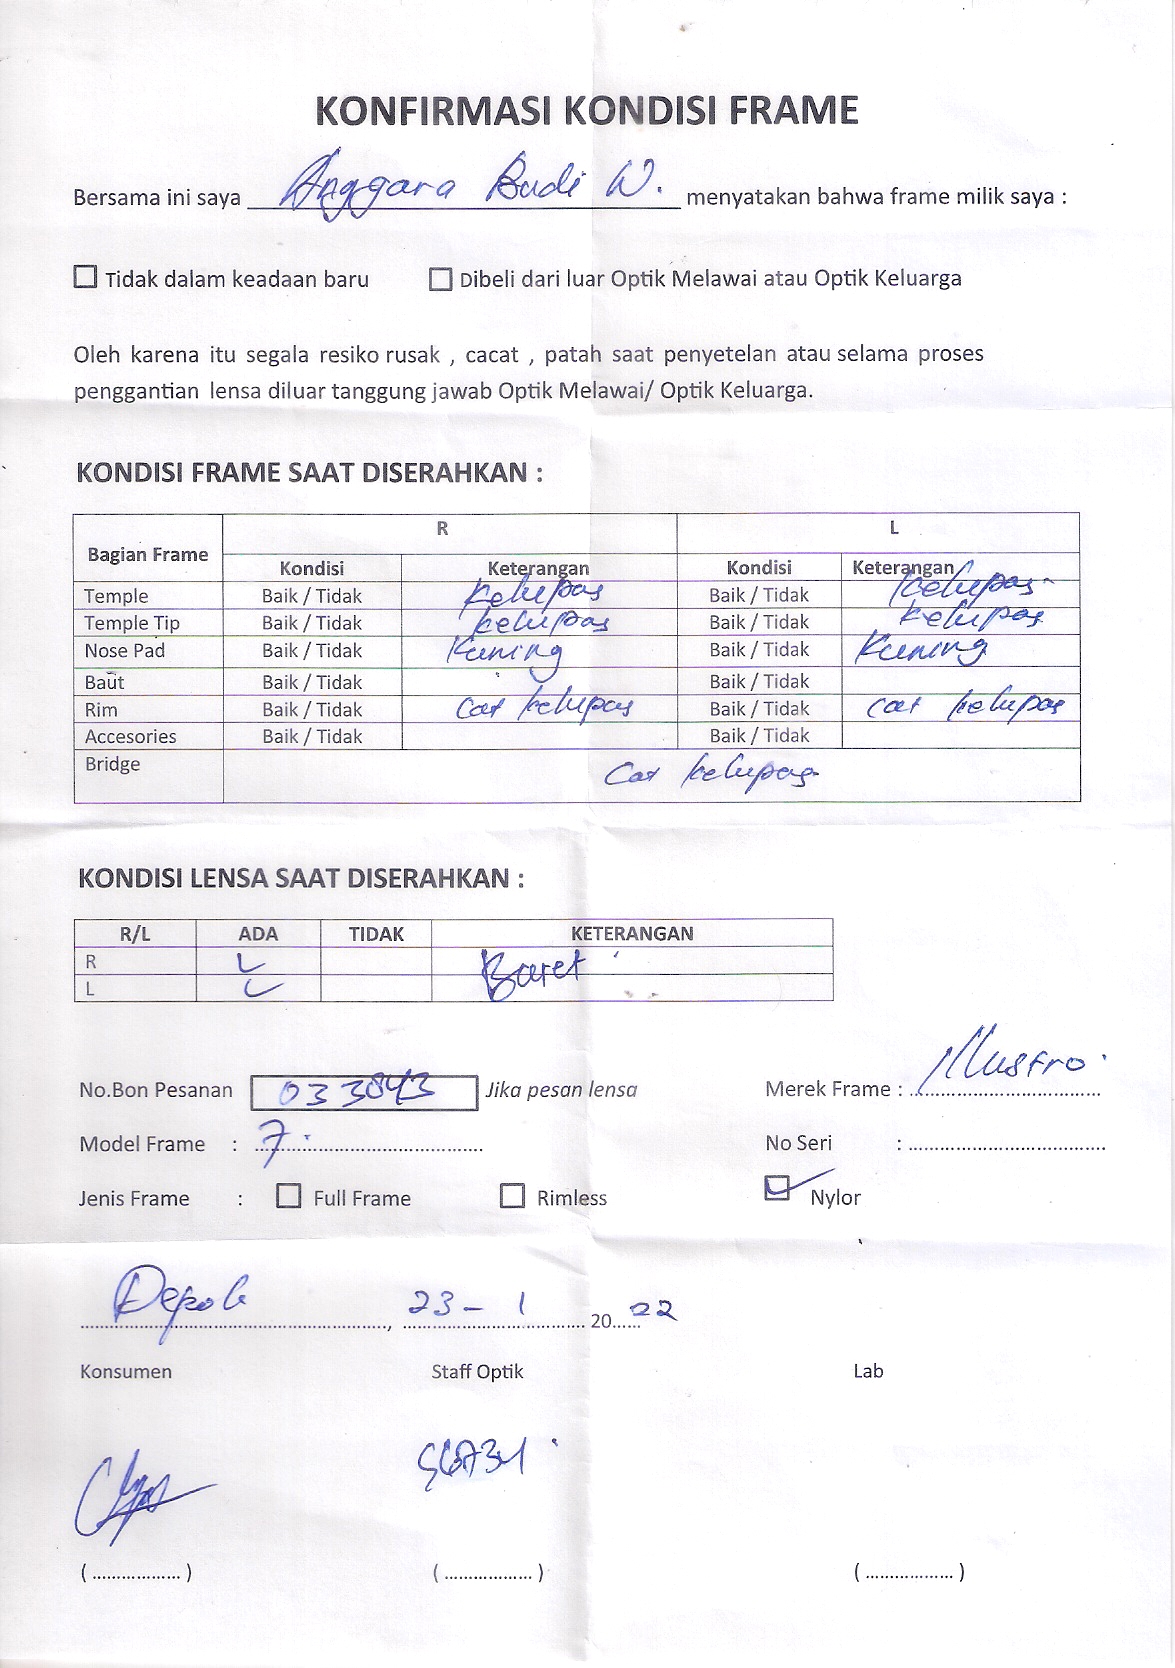 KONFIRMASI KONDISI FRAME
Bersama ini saya Anggara Budi W. menyatakan bahwa frame milik saya :
Tidak dalam keadaan baru Dibeli dari luar Optik Melawai atau Optik Keluarga
Oleh karena itu segala resiko rusak , cacat , patah saat penyetelan atau selama proses
penggantian lensa diluar tanggung jawab Optik Melawai/ Optik Keluarga.
KONDISI FRAME SAAT DISERAHKAN :
Bagian Frame R L
Kondisi Keterangan Kondisi Keterangan
Temple Baik / Tidak kelupas Baik / Tidak kelupas
Temple Tip Baik / Tidak kelupas Baik / Tidak kelupas
Nose Pad Baik / Tidak Kuning Baik / Tidak Kuning
Baut Baik / Tidak Baik / Tidak
Rim Baik / Tidak cat kelupas Baik / Tidak cat kelupas
Accesories Baik / Tidak Baik / Tidak
Bridge Cat kelupas
KONDISI LENSA SAAT DISERAHKAN :
R/L ADA TIDAK KETERANGAN
R Baret
L
No.Bon Pesanan 033843 Jika pesan lensa Merek Frame :
Model Frame : 7. No Seri :
Jenis Frame : Full Frame Rimless Nylor
Depok, 23 - 1 2022
Konsumen Staff Optik Lab
( .................. ) ( .................. ) ( .................. )